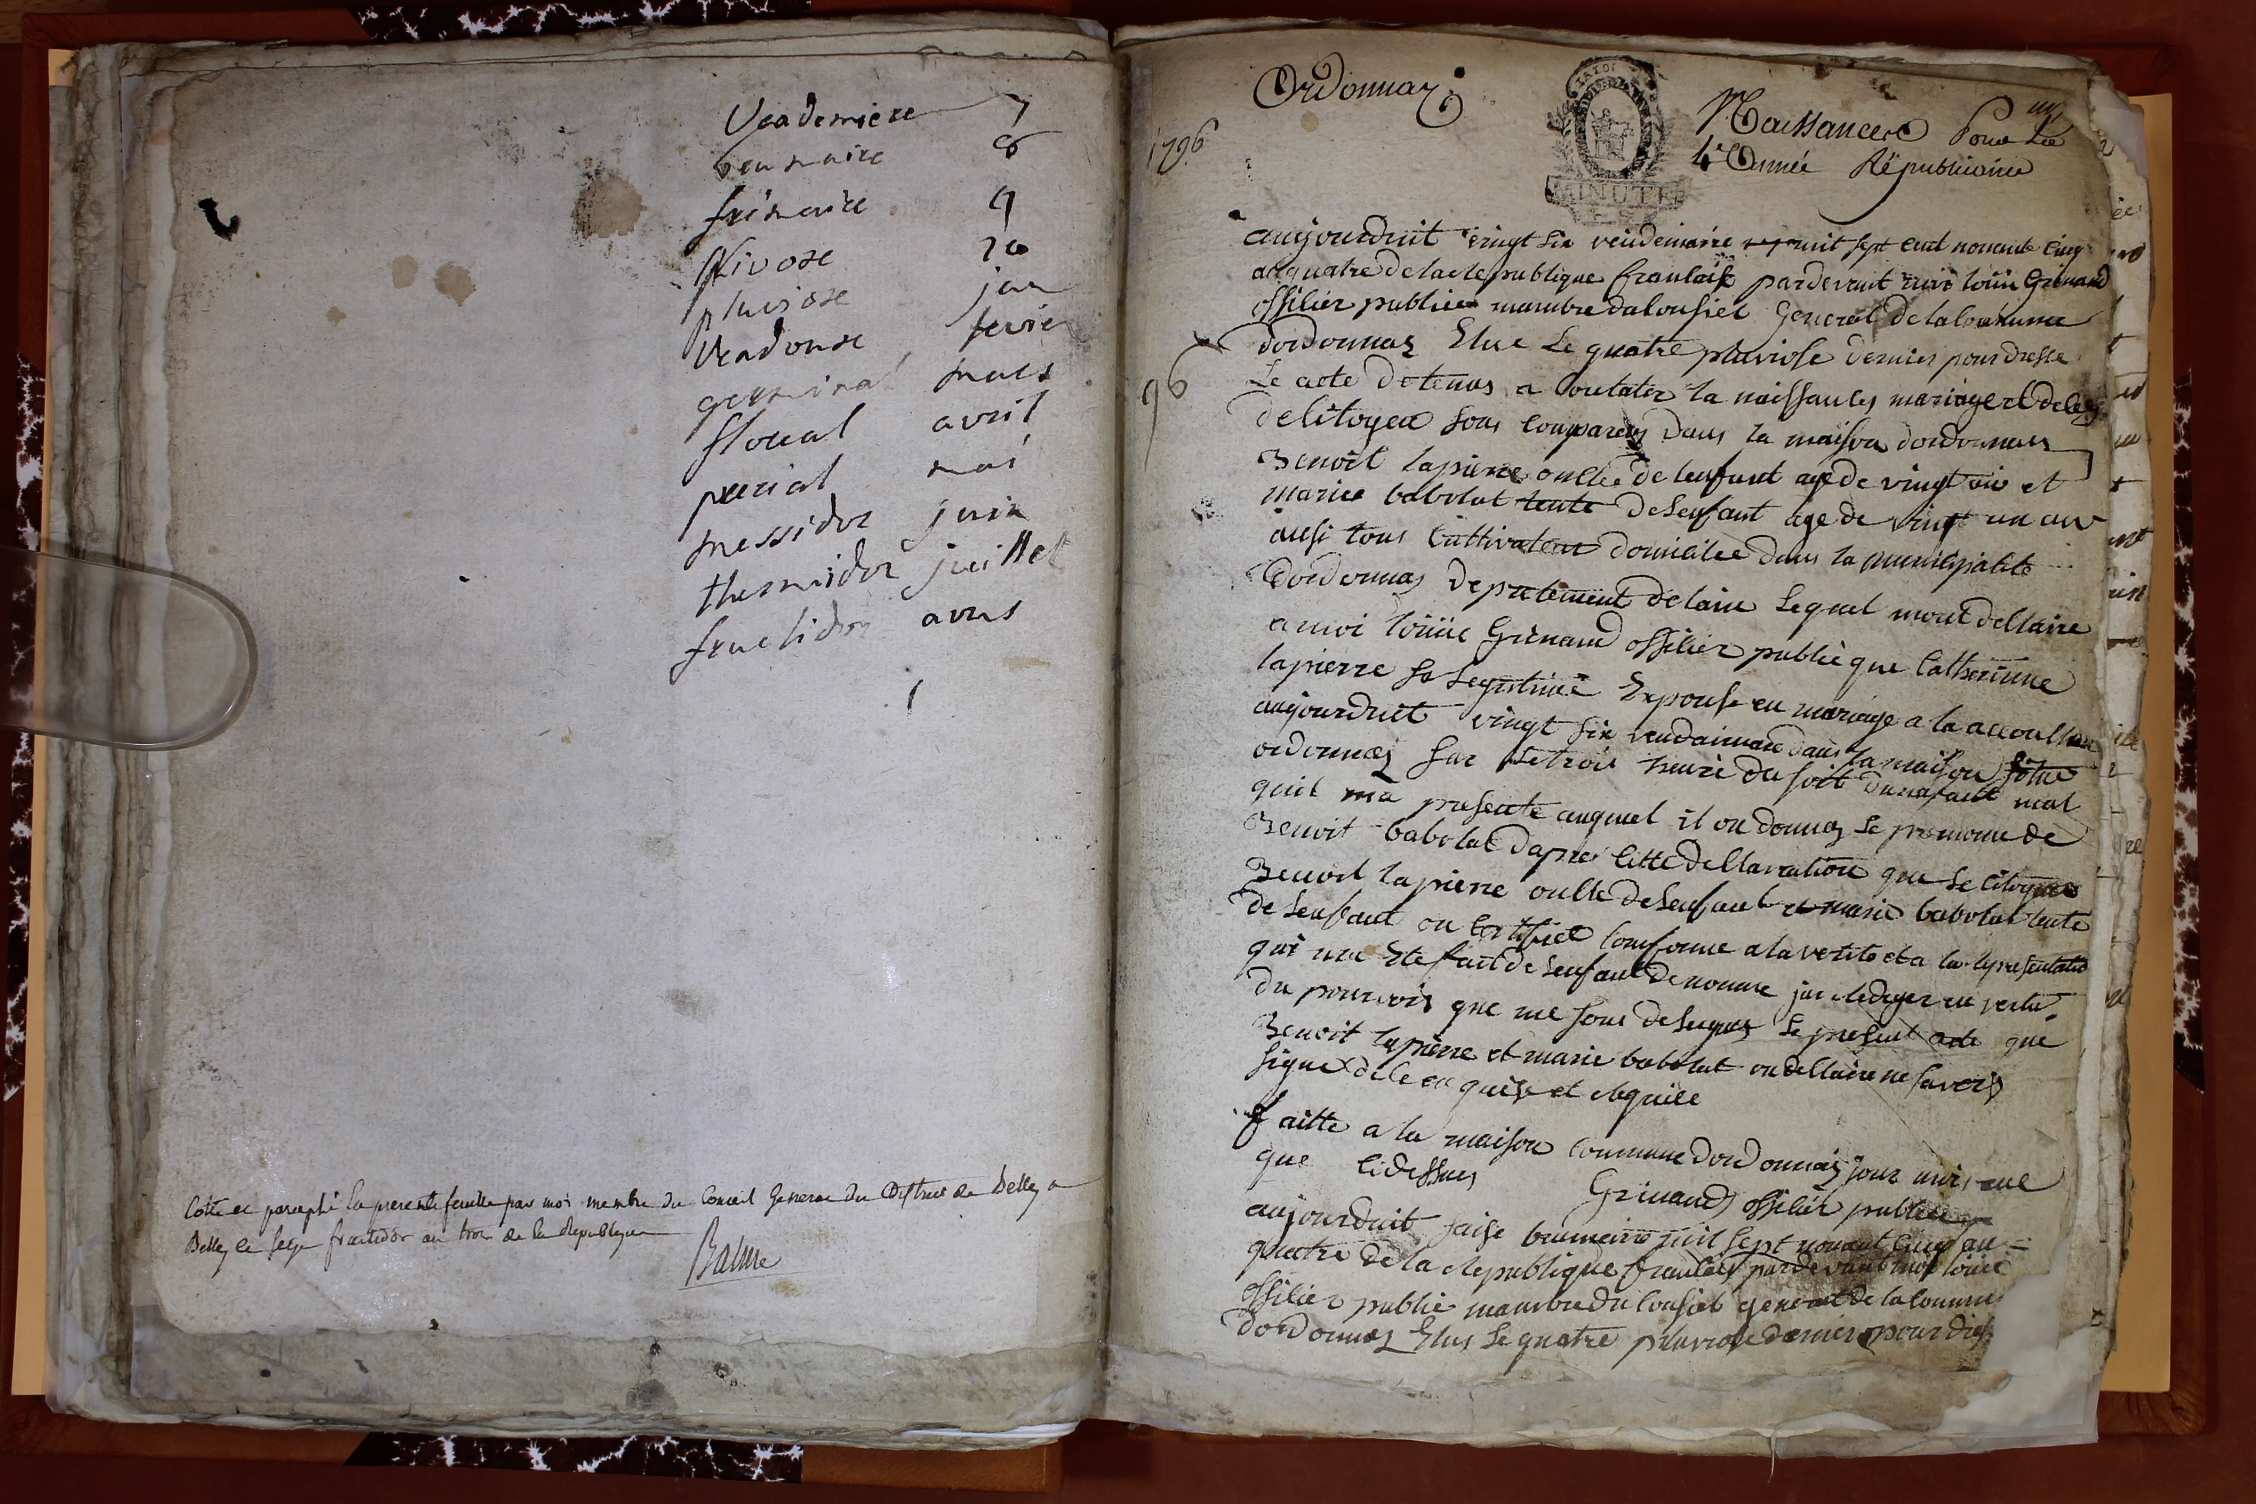 Veademiere 7
beumaire 8
frimaire 9
Nivose 10
pluviose jan
Veadouse fevrier
germinal mars
floreal avril
prerial mai
messidor juin
thermidor juillet
fructidor avus
Cotté et paraphé la presente feuille par moi membre du Conseil General du District de Belley a
Belley le seze fructidor an trois de la Republique
Balme
Ordonnaz
1796
MINUTE
Naissances Pour La
4e Année Républicaine
aujourduit vingt six vendemaire mil sept cent nonante cinq
an quatre de la republique franlaise pardevant moi loüis Grinand
offilier publie mambre du lonsiel General de la lommune
dordonnaz Elue Le quatre pluviose dernier pour dresse
96
Le acte a contater la naissances mariage et deles
de litoyen sons comparus dans la maison dordonnas
Benoit lapierre onlle de lenfant age de vingt et
mariee babolat tente de lenfant age de vint un an
ausi tous Cultivateur domicilee dans la municipalite
dordonnas depretement de lain Lequel mont dellaire
a moi loüis Grinand offilier publie que Catherinne
lapierre sa legitime Epouse en mariage a la accoulhee
aujourduit vingt six vendaimaire dans la maison sitüe
ordonnaz sur le trois heure du soir dun enfant mal
quil ma presente auquel il on donnaz le prenome de
Benoit babolat dapres lette dellaration que le litoyens
Benoit lapierre onlle de lenfant et marie babolat tente
de lenfant on Certifiet conforme a la verite et a la representation
qui me Ete fait de lenfant denomme jai redyer en vertu
du pouvoir que me sons delegues le present acte que
Benoit lapierre et marie babolat on dellaire ne savoir
signer de le en quise et requise
faitte a la maison commune dordonnaz jour mois que
que lidessus Grinand offilier publie
aujourduit saise brumaire mil sept nonant cinq an
quatre de la republique franlaise pardevant moi loüis
offilier publie mambre du lonsiel general de la lommun
dordonnaz Elus le quatre pluviose dernier pour dres